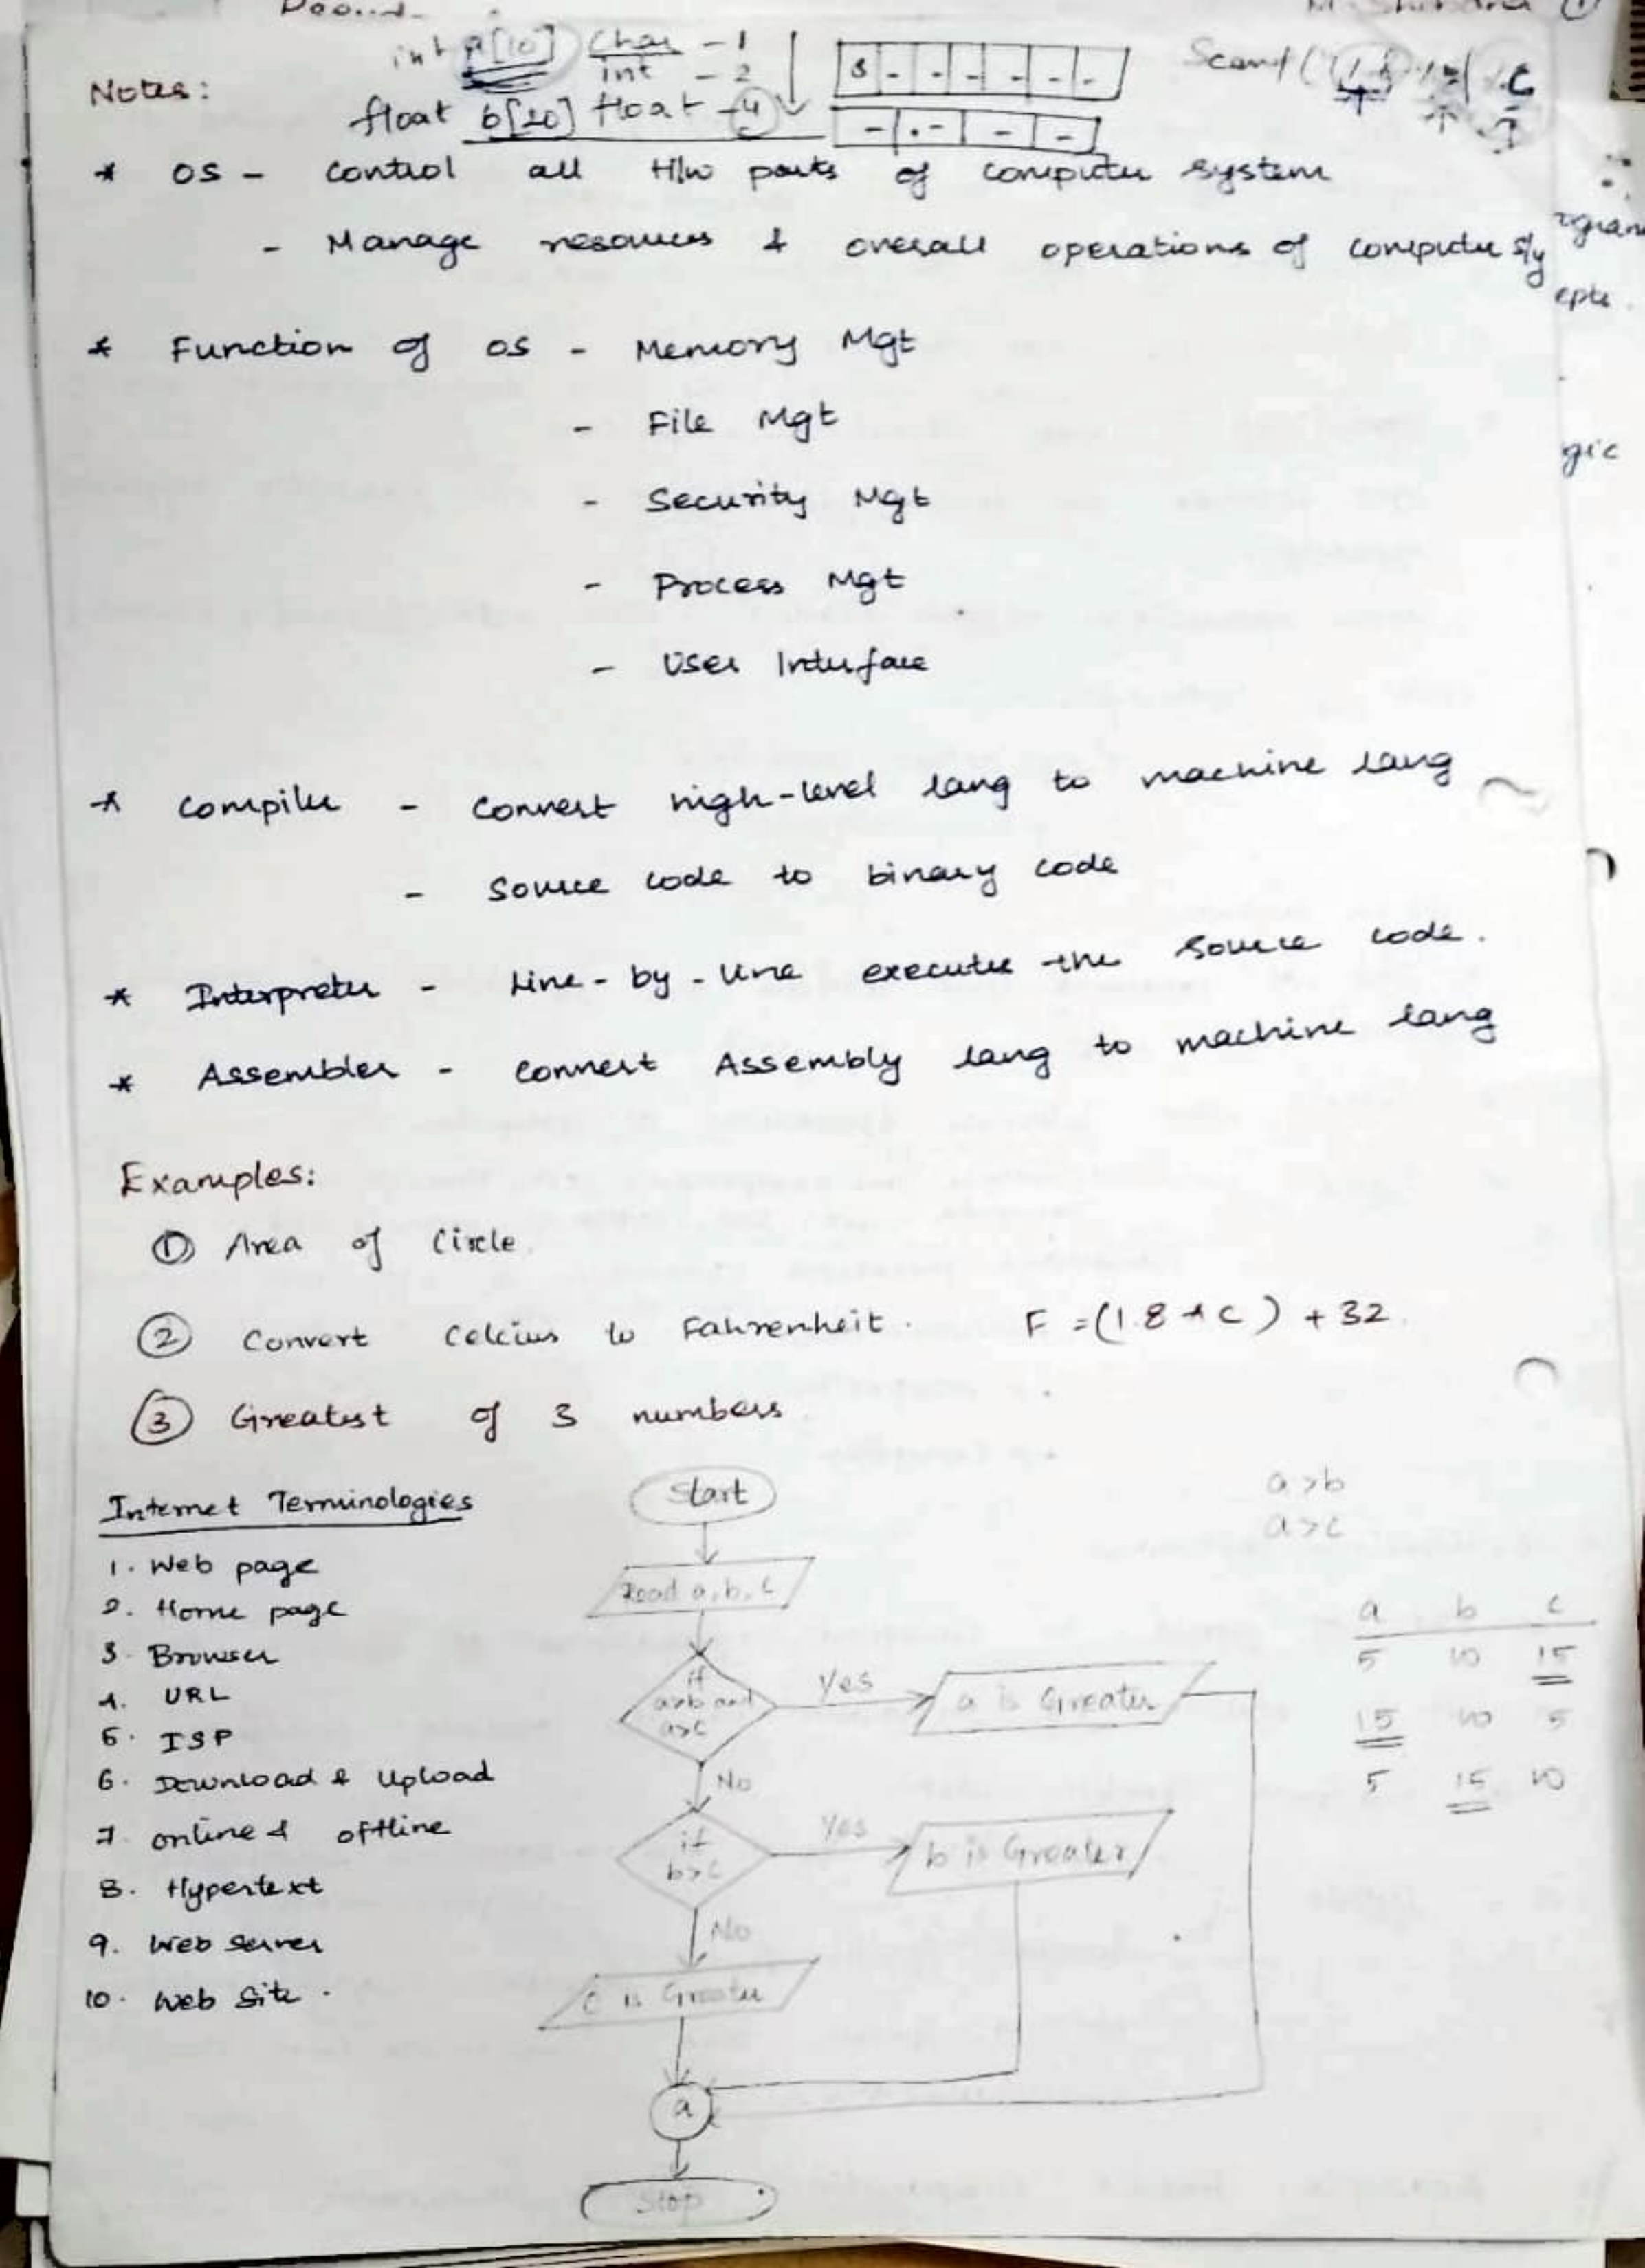 int a[10] char - 1
int - 2
Notes:
float b[20] float - 4
* OS - control all H/w parts of computer system
- Manage resources & overall operations of computer s/y
* Function of OS - Memory Mgt
- File Mgt
- Security Mgt
- Process Mgt
- User Interface
* Compiler - Convert high-level lang to machine lang
- Source code to binary code
* Interpreter - Line-by-line executes the source code.
* Assembler - Convert Assembly lang to machine lang
Examples:
① Area of Circle
② Convert Celcius to Fahrenheit. F = (1.8 * C) + 32
③ Greatest of 3 numbers
Internet Terminologies
1. Web page
2. Home page
3. Browser
4. URL
5. ISP
6. Download & Upload
7. online & offline
8. Hypertext
9. Web server
10. Web Site.
Start
Read a, b, c
if
a>b and
a>c
Yes
a is Greater
No
if
b>c
Yes
b is Greater
No
c is Greater
a
Stop
a>b
a>c
a b c
5 10 15
15 10 5
5 15 10